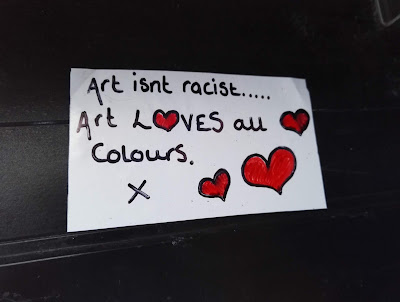 Art isnt racist.....
Art L❤VES all
Colours.
X